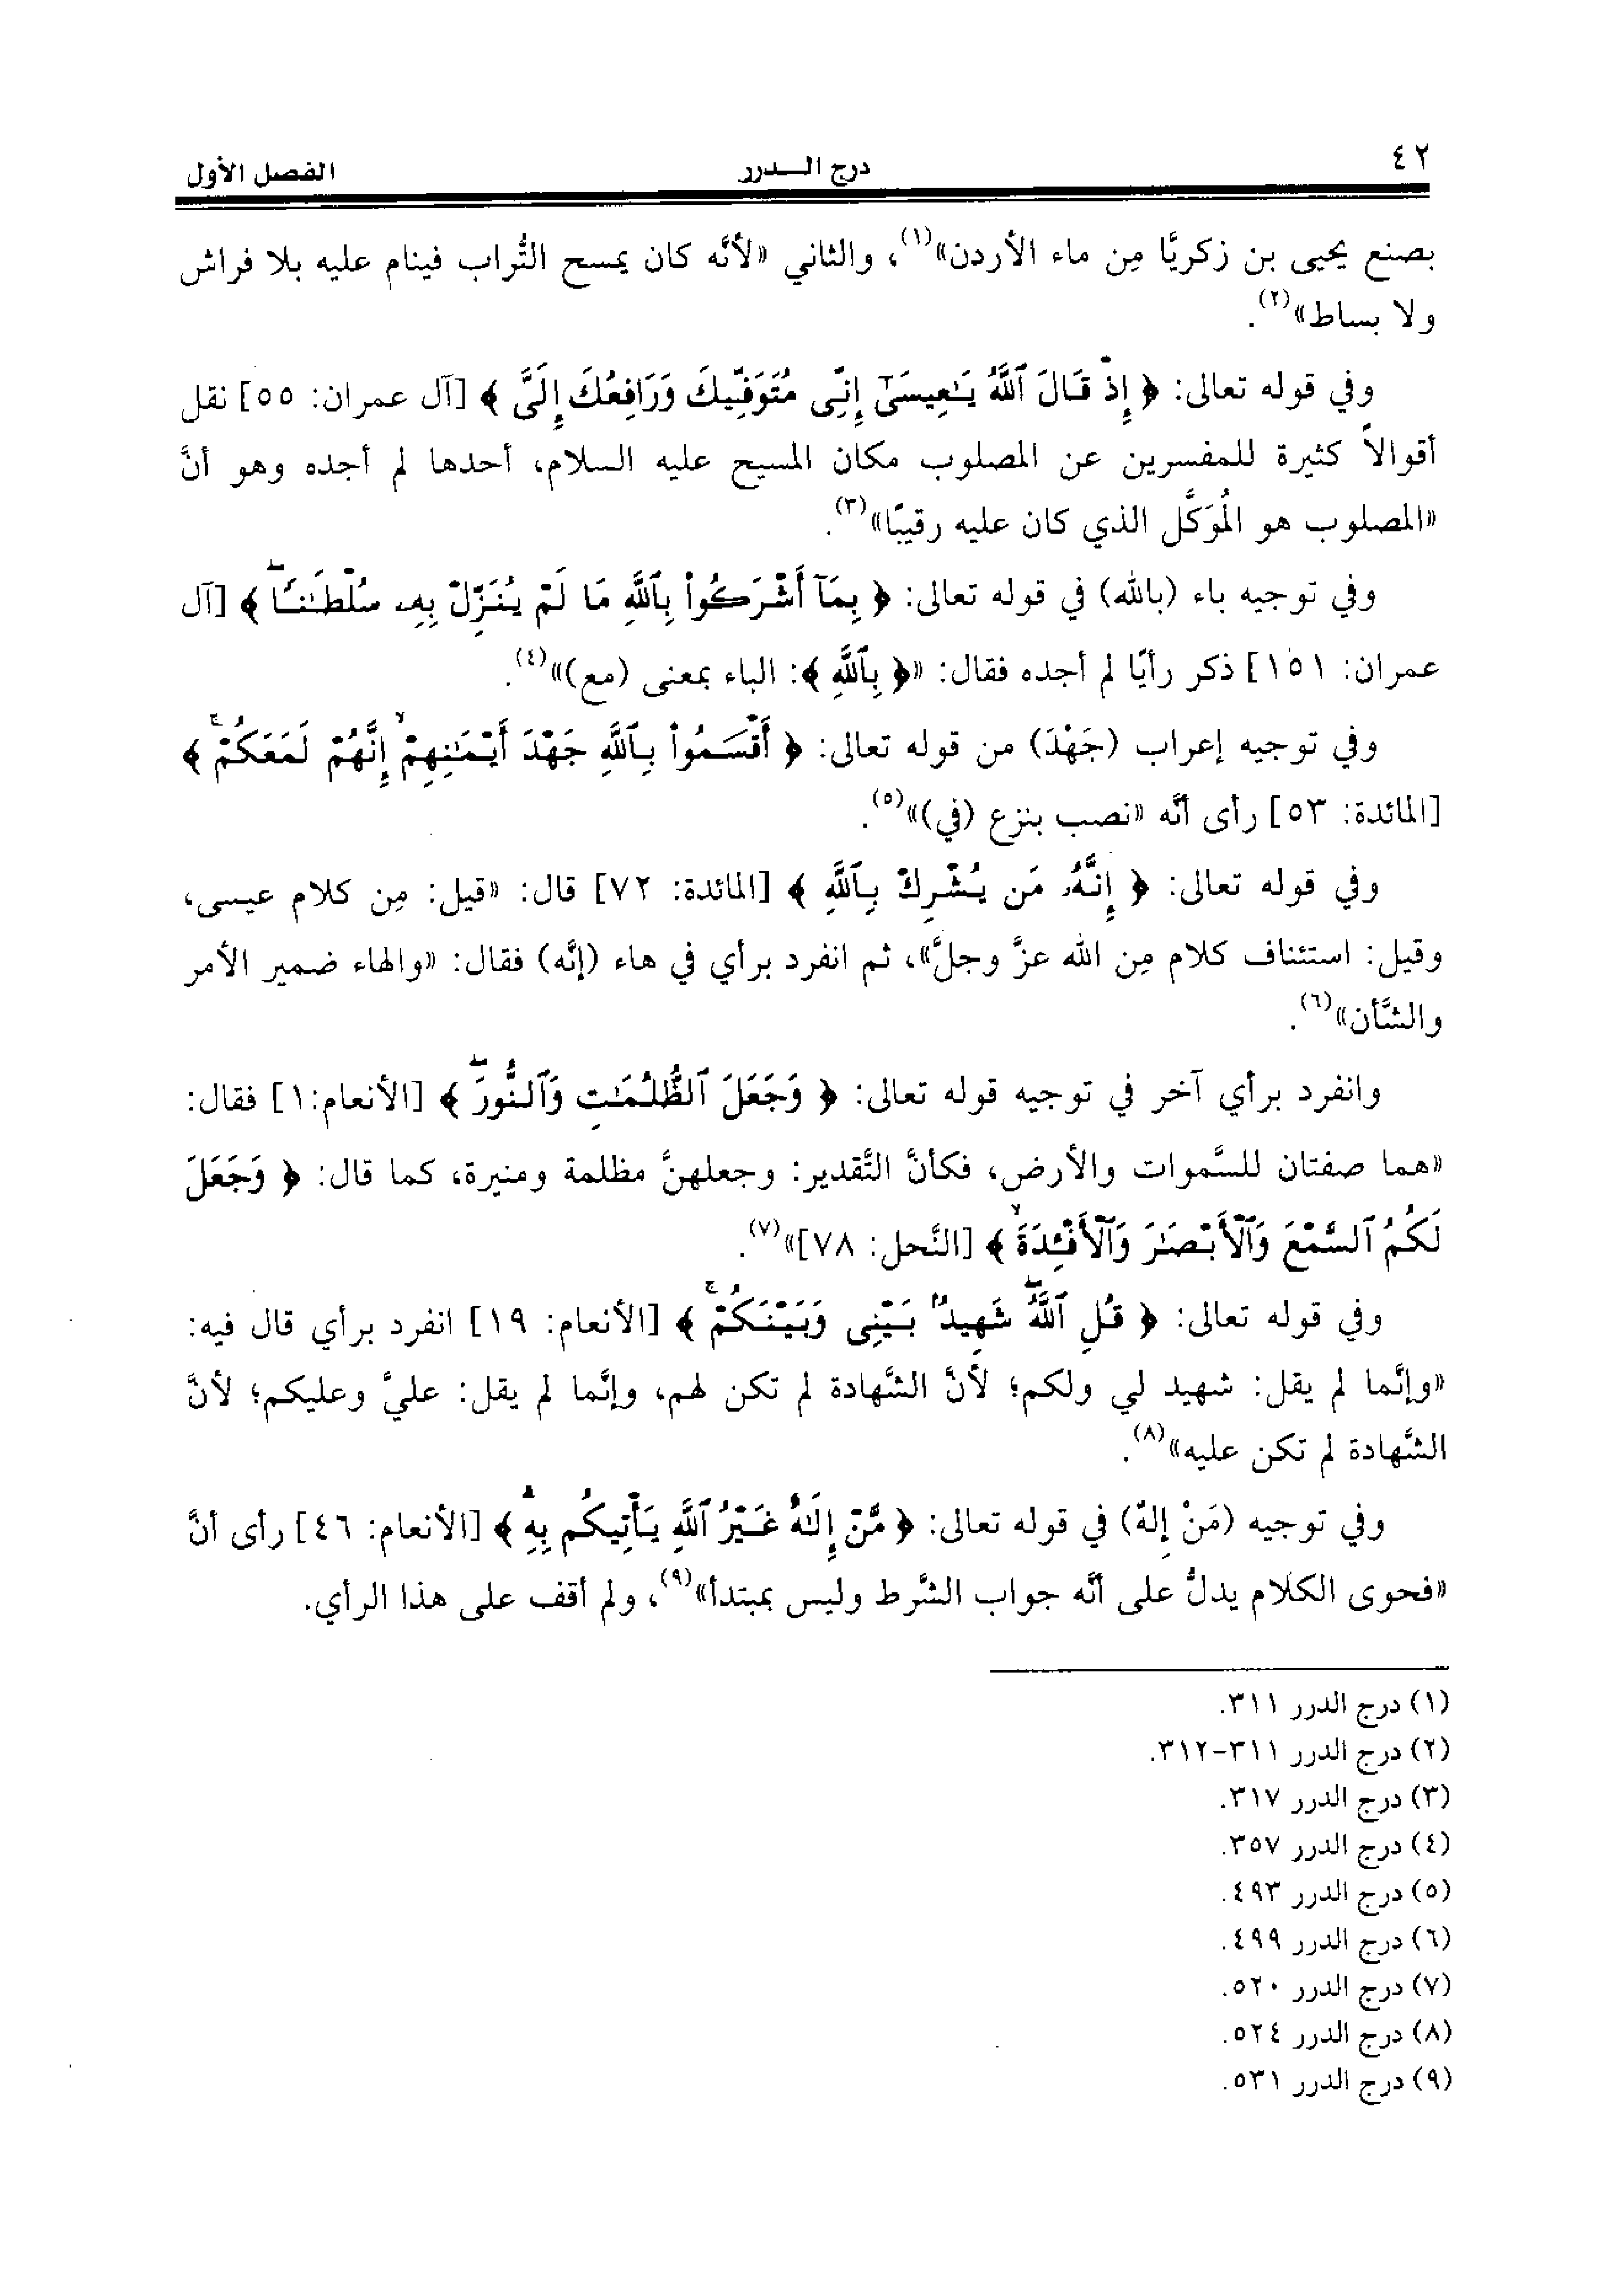 ٤٢ درج الـــدرر الفصل الأول
بصنع يحيى بن زكريَّا مِن ماء الأردن»(١)، والثاني «لأنَّه كان يمسح التُّراب فينام عليه بلا فراش
ولا بساط»(٢).
وفي قوله تعالى: ﴿ إِذْ قَالَ ٱللَّهُ يَـٰعِيسَىٰٓ إِنِّى مُتَوَفِّيكَ وَرَافِعُكَ إِلَىَّ ﴾ [آل عمران: ٥٥] نقل
أقوالاً كثيرة للمفسرين عن المصلوب مكان المسيح عليه السلام، أحدها لم أجده وهو أنَّ
«المصلوب هو المُوَكَّل الذي كان عليه رقيبًا»(٣).
وفي توجيه باء (بالله) في قوله تعالى: ﴿ بِمَآ أَشْرَكُوا۟ بِٱللَّهِ مَا لَمْ يُنَزِّلْ بِهِۦ سُلْطَـٰنًۭا ۖ ﴾ [آل
عمران: ١٥١] ذكر رأيًا لم أجده فقال: «﴿ بِٱللَّهِ ﴾: الباء بمعنى (مع)»(٤).
وفي توجيه إعراب (جَهْدَ) من قوله تعالى: ﴿ أَقْسَمُوا۟ بِٱللَّهِ جَهْدَ أَيْمَـٰنِهِمْ ۙ إِنَّهُمْ لَمَعَكُمْ ۚ ﴾
[المائدة: ٥٣] رأى أنَّه «نصب بنزع (في)»(٥).
وفي قوله تعالى: ﴿ إِنَّهُۥ مَن يُشْرِكْ بِٱللَّهِ ﴾ [المائدة: ٧٢] قال: «قيل: مِن كلام عيسى،
وقيل: استئناف كلام مِن الله عزَّ وجلَّ»، ثم انفرد برأي في هاء (إنَّه) فقال: «والهاء ضمير الأمر
والشَّأن»(٦).
وانفرد برأي آخر في توجيه قوله تعالى: ﴿ وَجَعَلَ ٱلظُّلُمَـٰتِ وَٱلنُّورَ ۖ ﴾ [الأنعام:١] فقال:
«هما صفتان للسَّموات والأرض، فكأنَّ التَّقدير: وجعلهنَّ مظلمة ومنيرة، كما قال: ﴿ وَجَعَلَ
لَكُمُ ٱلسَّمْعَ وَٱلْأَبْصَـٰرَ وَٱلْأَفْـِٔدَةَ ۙ ﴾ [النَّحل: ٧٨]»(٧).
وفي قوله تعالى: ﴿ قُلِ ٱللَّهُ ۖ شَهِيدٌۢ بَيْنِى وَبَيْنَكُمْ ۚ ﴾ [الأنعام: ١٩] انفرد برأي قال فيه:
«وإنَّما لم يقل: شهيد لي ولكم؛ لأنَّ الشَّهادة لم تكن لهم، وإنَّما لم يقل: عليَّ وعليكم؛ لأنَّ
الشَّهادة لم تكن عليه»(٨).
وفي توجيه (مَنْ إِلهٌ) في قوله تعالى: ﴿ مَّنْ إِلَـٰهٌ غَيْرُ ٱللَّهِ يَأْتِيكُم بِهِ ۗ ﴾ [الأنعام: ٤٦] رأى أنَّ
«فحوى الكلام يدلُّ على أنَّه جواب الشَّرط وليس بمبتدأ»(٩)، ولم أقف على هذا الرأي.
(١) درج الدرر ٣١١.
(٢) درج الدرر ٣١١-٣١٢.
(٣) درج الدرر ٣١٧.
(٤) درج الدرر ٣٥٧.
(٥) درج الدرر ٤٩٣.
(٦) درج الدرر ٤٩٩.
(٧) درج الدرر ٥٢٠.
(٨) درج الدرر ٥٢٤.
(٩) درج الدرر ٥٣١.